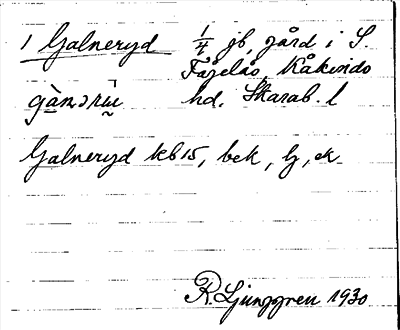 1 Galneryd 1/4 jb, gård i S.
Fågelås, Kåkinds
hd, Skarab. l
Galneryd kb15, bek, lj, ek
R. Ljunggren 1930